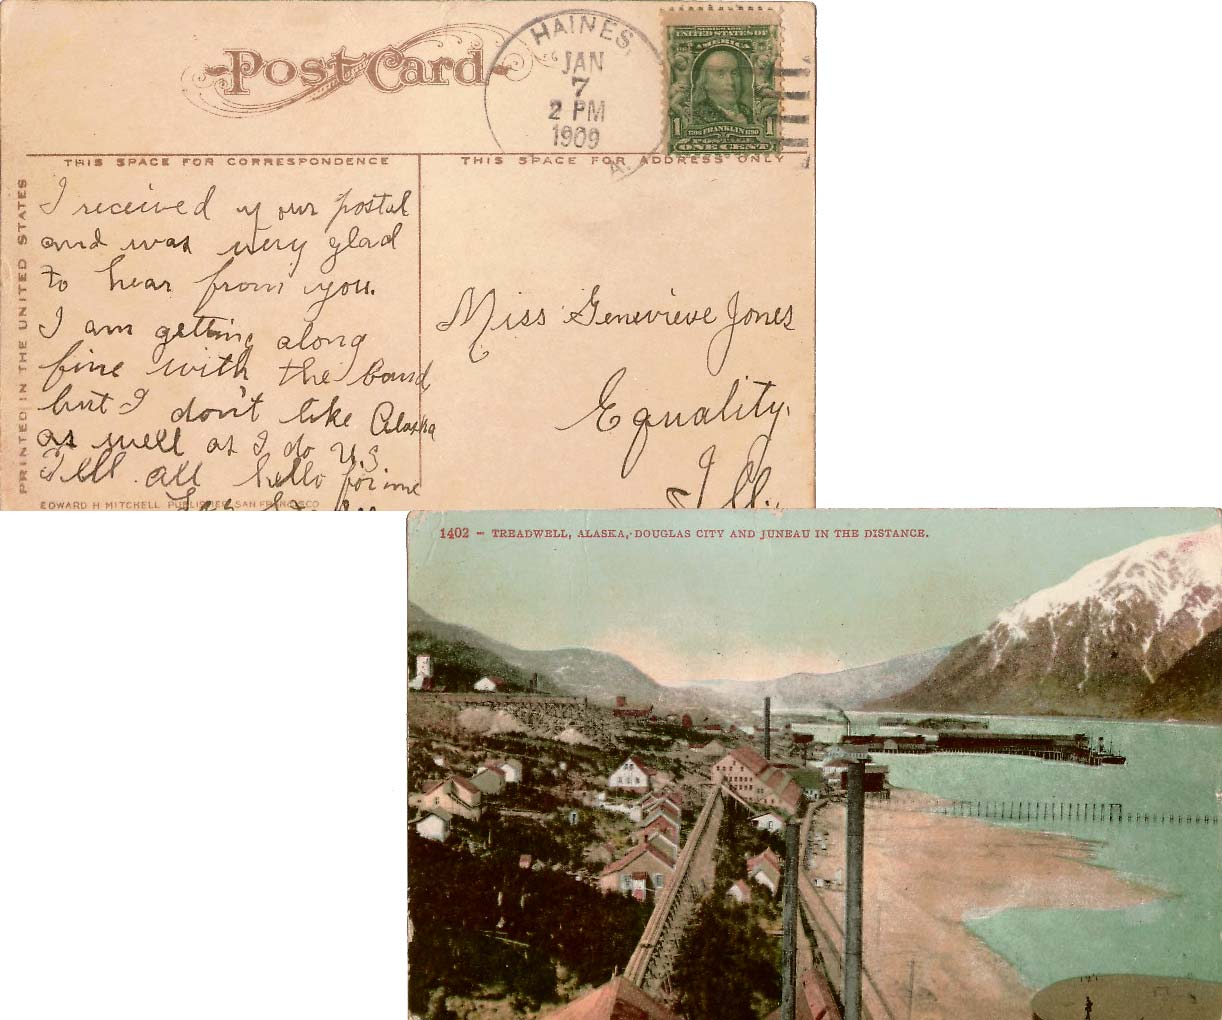 Post Card
HAINES,
JAN
7
2 PM
1909
A.
SERIES 1902
UNITED STATES OF
AMERICA
1 1706 FRANKLIN 1790 1
POSTAGE
ONE CENT
THIS SPACE FOR CORRESPONDENCE
THIS SPACE FOR ADDRESS ONLY
PRINTED IN THE UNITED STATES
I received your postal
and was very glad
to hear from you.
I am getting along
fine with the band
but I don't like Alaska
as well as I do U.S
Tell all hello for me
Miss Genevieve Jones
Equality.
Ill.
EDWARD H MITCHELL PUBLISHER SAN FRANCISCO
1402 - TREADWELL, ALASKA, DOUGLAS CITY AND JUNEAU IN THE DISTANCE.